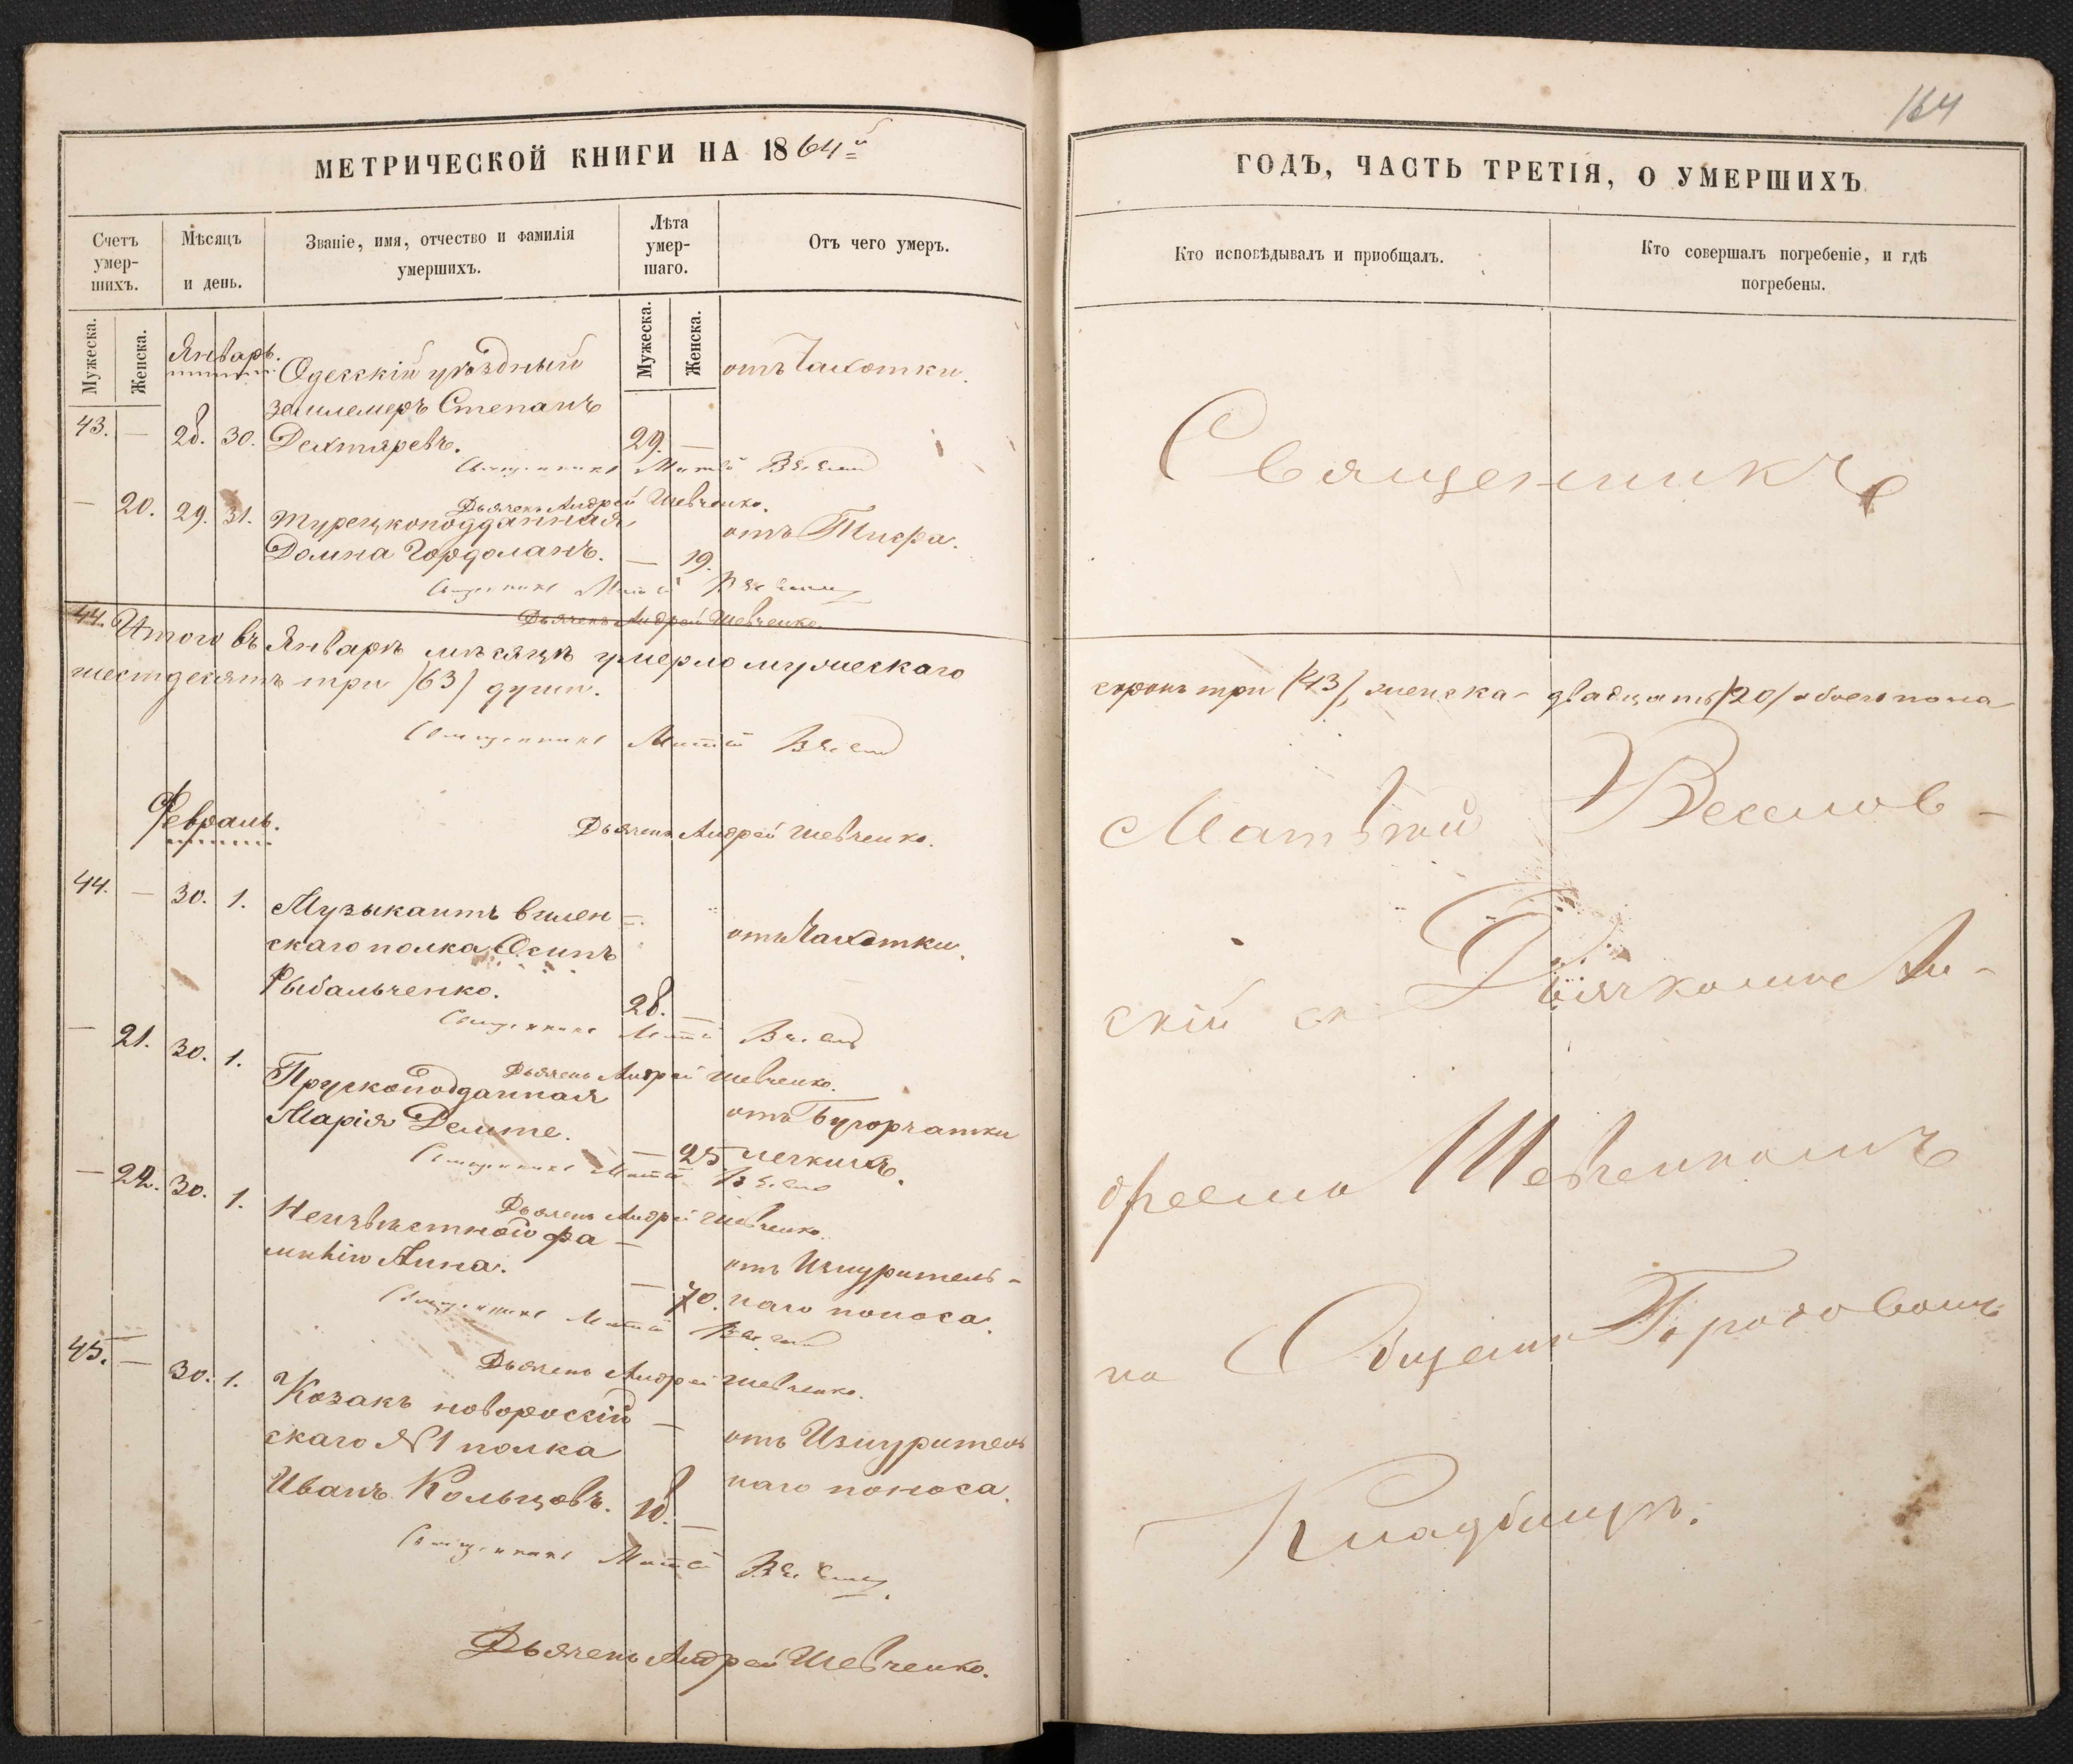 164
МЕТРИЧЕСКОЙ КНИГИ НА 1864й
Счетъ умер-шихъ.
Мѣсяцъ и день.
Званіе, имя, отчество и фамилія
умершихъ.
Лѣта умер-шаго.
Отъ чего умеръ.
Мужеска.
Женска.
Мужеска.
Женска.
Январь.
Одесскій уѣздный отъ Чахотки.
землемеръ Степанъ
43. — 28. 30. Дехтяревъ. 29. —
Священникъ Матѳей
Дьячекъ Андрей Шевченко.
— 20. 29. 31. Турецкоподданная отъ Тифа.
Домна Чордоланъ. — 19.
Священникъ Матѳей
Дьячекъ Андрей Шевченко.
44. Итого въ Январѣ мѣсяцѣ умерло мужескаго
шестдесятъ три /63/ душъ.
Священникъ Матѳей
Февраль.
Дьячекъ Андрей Шевченко.
44. — 30. 1. Музыкантъ вилен
скаго полка Осипъ отъ Чахотки.
Рыбальченко. 28. —
Священникъ Матѳей
Дьячекъ Андрей Шевченко.
— 21. 30. 1. Прускоподданная отъ Бугорчатки
Марія Демте. — 25 легкихъ.
Священникъ Матѳей
Дьячекъ Андрей Шевченко.
— 22. 30. 1. Неизвѣстной фа
миліи Анна. отъ Изнуритель-
— 70. наго поноса.
Священникъ Матѳей
Дьячекъ Андрей Шевченко.
45. — 30. 1. Козакъ новоросій
скаго №1 полка отъ Изнурител
Иванъ Кольцовъ. 18. — наго поноса.
Священникъ Матѳей
Дьячекъ Андрей Шевченко.
ГОДЪ, ЧАСТЬ ТРЕТІЯ, О УМЕРШИХЪ
Кто исповѣдывалъ и пріобщалъ.
Кто совершалъ погребеніе, и гдѣ
погребены.
Священникъ
сорокъ три /43/, женска- двадцать /20/ обоего пола
Матѳей Веселов-
скій съ Дьячкомъ Ан-
дреемъ Шевченкомъ
на Общемъ Городовомъ
Кладбищѣ.